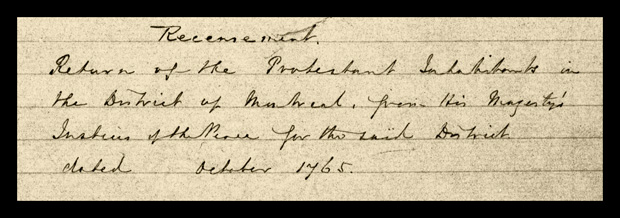 Recensement.
Return of the Protestant Inhabitants in
the District of Montreal, from His Majesty's
Justices of the Peace for the said District
dated October 1765.